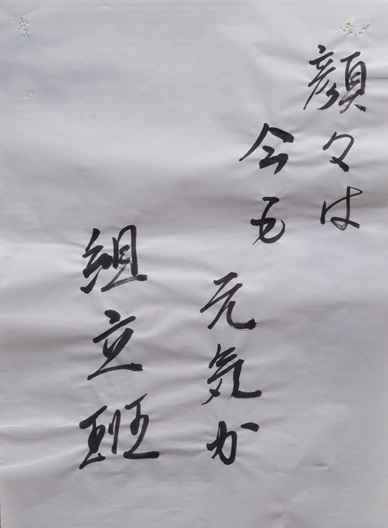 顔々は
今も
元気か
組立班